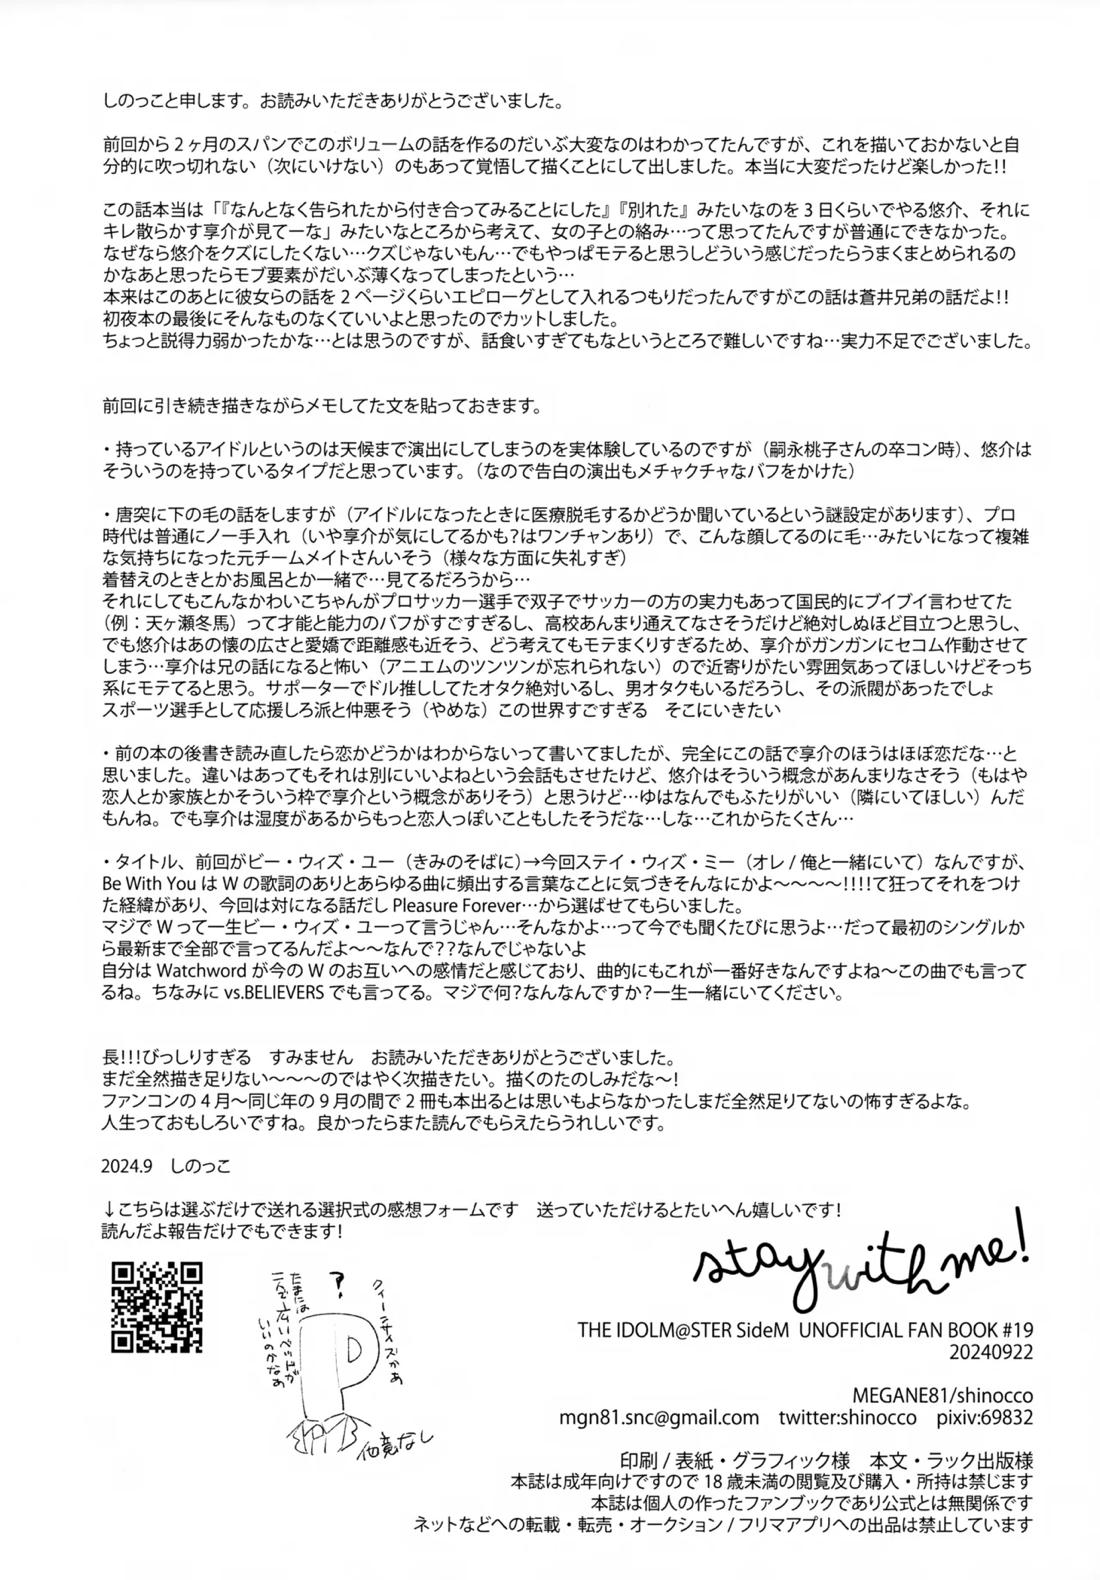 しのっこと申します。お読みいただきありがとうございました。
前回から2ヶ月のスパンでこのボリュームの話を作るのだいぶ大変なのはわかってたんですが、これを描いておかないと自
分的に吹っ切れない（次にいけない）のもあって覚悟して描くことにして出しました。本当に大変だったけど楽しかった!!
この話本当は「『なんとなく告られたから付き合ってみることにした』『別れた』みたいなのを3日くらいでやる悠介、それに
キレ散らかす享介が見てーな」みたいなところから考えて、女の子との絡み…って思ってたんですが普通にできなかった。
なぜなら悠介をクズにしたくない…クズじゃないもん…でもやっぱモテると思うしどういう感じだったらうまくまとめられるの
かなあと思ったらモブ要素がだいぶ薄くなってしまったという…
本来はこのあとに彼女らの話を2ページくらいエピローグとして入れるつもりだったんですがこの話は蒼井兄弟の話だよ!!
初夜本の最後にそんなものなくていいよと思ったのでカットしました。
ちょっと説得力弱かったかな…とは思うのですが、話食いすぎてもなというところで難しいですね…実力不足でございました。
前回に引き続き描きながらメモしてた文を貼っておきます。
・持っているアイドルというのは天候まで演出にしてしまうのを実体験しているのですが（嗣永桃子さんの卒コン時）、悠介は
そういうのを持っているタイプだと思っています。（なので告白の演出もメチャクチャなバフをかけた）
・唐突に下の毛の話をしますが（アイドルになったときに医療脱毛するかどうか聞いているという謎設定があります）、プロ
時代は普通にノー手入れ（いや享介が気にしてるかも?はワンチャンあり）で、こんな顔してるのに毛…みたいになって複雑
な気持ちになった元チームメイトさんいそう（様々な方面に失礼すぎ）
着替えのときとかお風呂とか一緒で…見てるだろうから…
それにしてもこんなかわいこちゃんがプロサッカー選手で双子でサッカーの方の実力もあって国民的にブイブイ言わせてた
（例：天ヶ瀬冬馬）って才能と能力のバフがすごすぎるし、高校あんまり通えてなさそうだけど絶対しぬほど目立つと思うし、
でも悠介はあの懐の広さと愛嬌で距離感も近そう、どう考えてもモテまくりすぎるため、享介がガンガンにセコム作動させて
しまう…享介は兄の話になると怖い（アニエムのツンツンが忘れられない）ので近寄りがたい雰囲気あってほしいけどそっち
系にモテてると思う。サポーターでドル推ししてたオタク絶対いるし、男オタクもいるだろうし、その派閥があったでしょ
スポーツ選手として応援しろ派と仲悪そう（やめな）この世界すごすぎる　そこにいきたい
・前の本の後書き読み直したら恋かどうかはわからないって書いてましたが、完全にこの話で享介のほうはほぼ恋だな…と
思いました。違いはあってもそれは別にいいよねという会話もさせたけど、悠介はそういう概念があんまりなさそう（もはや
恋人とか家族とかそういう枠で享介という概念がありそう）と思うけど…ゆはなんでもふたりがいい（隣にいてほしい）んだ
もんね。でも享介は湿度があるからもっと恋人っぽいこともしたそうだな…しな…これからたくさん…
・タイトル、前回がビー・ウィズ・ユー（きみのそばに）→今回ステイ・ウィズ・ミー（オレ/俺と一緒にいて）なんですが、
Be With YouはWの歌詞のありとあらゆる曲に頻出する言葉なことに気づきそんなにかよ〜〜〜〜!!!!て狂ってそれをつけ
た経緯があり、今回は対になる話だしPleasure Forever…から選ばせてもらいました。
マジでWって一生ビー・ウィズ・ユーって言うじゃん…そんなかよ…って今でも聞くたびに思うよ…だって最初のシングルか
ら最新まで全部で言ってるんだよ〜〜なんで??なんでじゃないよ
自分はWatchwordが今のWのお互いへの感情だと感じており、曲的にもこれが一番好きなんですよね〜この曲でも言って
るね。ちなみにvs.BELIEVERSでも言ってる。マジで何?なんなんですか?一生一緒にいてください。
長!!!びっしりすぎる　すみません　お読みいただきありがとうございました。
まだ全然描き足りない〜〜〜のではやく次描きたい。描くのたのしみだな〜!
ファンコンの4月〜同じ年の9月の間で2冊も本出るとは思いもよらなかったしまだ全然足りてないの怖すぎるよな。
人生っておもしろいですね。良かったらまた読んでもらえたらうれしいです。
2024.9　しのっこ
↓こちらは選ぶだけで送れる選択式の感想フォームです　送っていただけるとたいへん嬉しいです!
読んだよ報告だけでもできます!
クィーンサイズかぁ
?
たまには
二人で広いベッドが
いいのかなぁ
P
他意なし
stay with me!
THE IDOLM@STER SideM UNOFFICIAL FAN BOOK #19
20240922
MEGANE81/shinocco
mgn81.snc@gmail.com　twitter:shinocco　pixiv:69832
印刷/表紙・グラフィック様　本文・ラック出版様
本誌は成年向けですので18歳未満の閲覧及び購入・所持は禁じます
本誌は個人の作ったファンブックであり公式とは無関係です
ネットなどへの転載・転売・オークション/フリマアプリへの出品は禁止しています